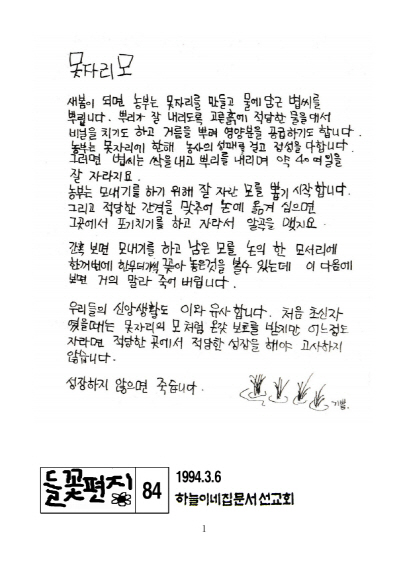 못자리 모
새봄이 되면 농부는 못자리를 만들고 물에 담근 볍씨를
뿌립니다. 뿌리가 잘 내리도록 고른흙에 적당한 물을 대서
비닐을 치기도 하고 거름을 뿌려 영양분을 공급하기도 합니다.
농부는 못자리에 한해 농사의 성패를 걸고 정성을 다합니다.
그러면 볍씨는 싹을 내고 뿌리를 내리며 약 40여일을
잘 자라지요.
농부는 모내기를 하기 위해 잘 자란 모를 뽑기 시작합니다.
그리고 적당한 간격을 맞추어 논에 옮겨 심으면
그곳에서 포기치기를 하고 자라서 알곡을 맺지요.
간혹 보면 모내기를 하고 남은 모를 논의 한 모서리에
한꺼번에 한무더기씩 꽂아 놓은것을 볼수 있는데 이 다음에
보면 거의 말라 죽어 버립니다.
우리들의 신앙생활도 이와 유사합니다. 처음 초신자
였을때는 못자리의 모처럼 온갖 보호를 받지만 어느정도
자라면 적당한 곳에서 적당한 성장을 해야 고사하지
않습니다.
성장하지 않으면 죽습니다.
기쁨.
들꽃편지 84
1994.3.6
하늘이네집문서선교회
1